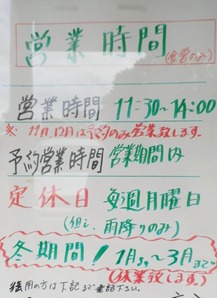 営業時間
営業時間 11:30~14:00
※11月、12月は予約のみ営業致します。
予約営業時間 営業期間内
定休日 毎週月曜日
(但し、雨降りのみ)
冬期間! 1月~3月まで
(休業致します)
御用の方は下記まで御電話下さい。